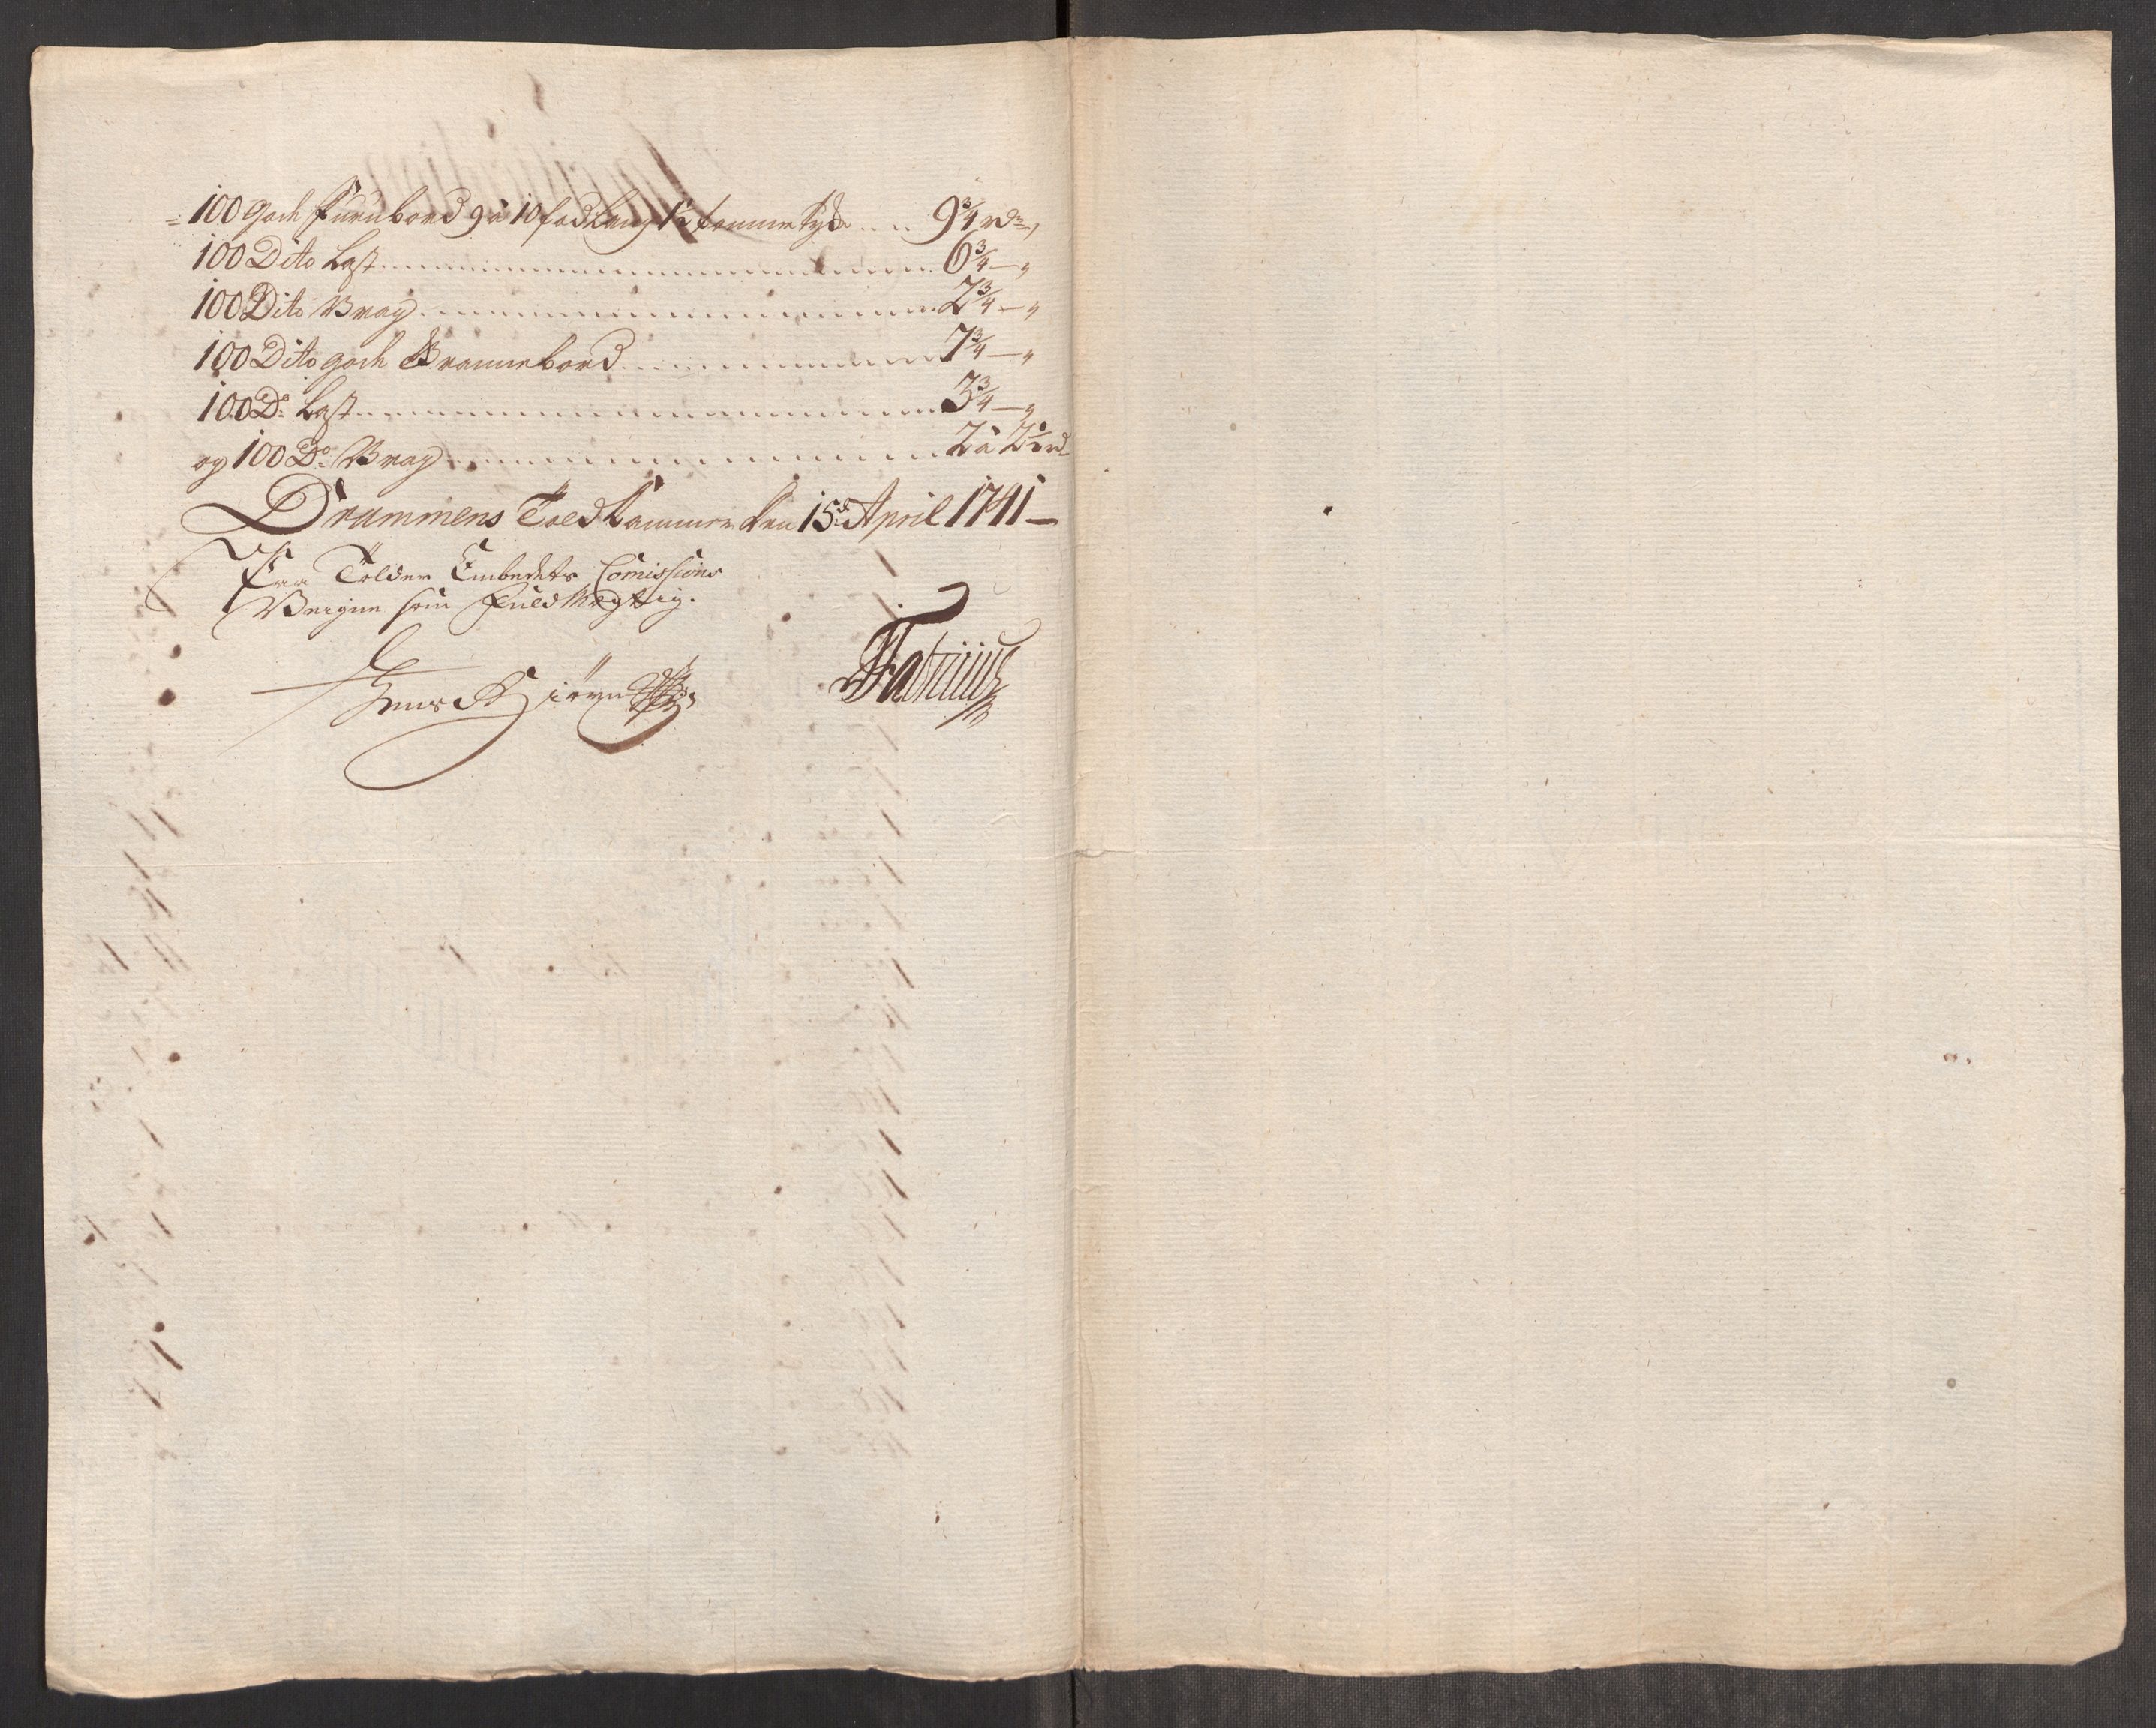 100 godh Furubord 9 à 10 fod Lang 1½ tomme tyk .... 9¾ rd
100 Dito Last ............ 6¾ — "
100 Dito Vrag ............ 2¾ — "
100 Dito godh Grannebord ............ 7¾ — "
100 Do Last ............ 3¾ — "
og 100 Do Vrag ............ 2 à 2½ rd
Drammens Told Cammer den 15de April 1741 —
Paa Tolder Embedets Comissions
Vegne som Fuldmegtig.
Fabritius